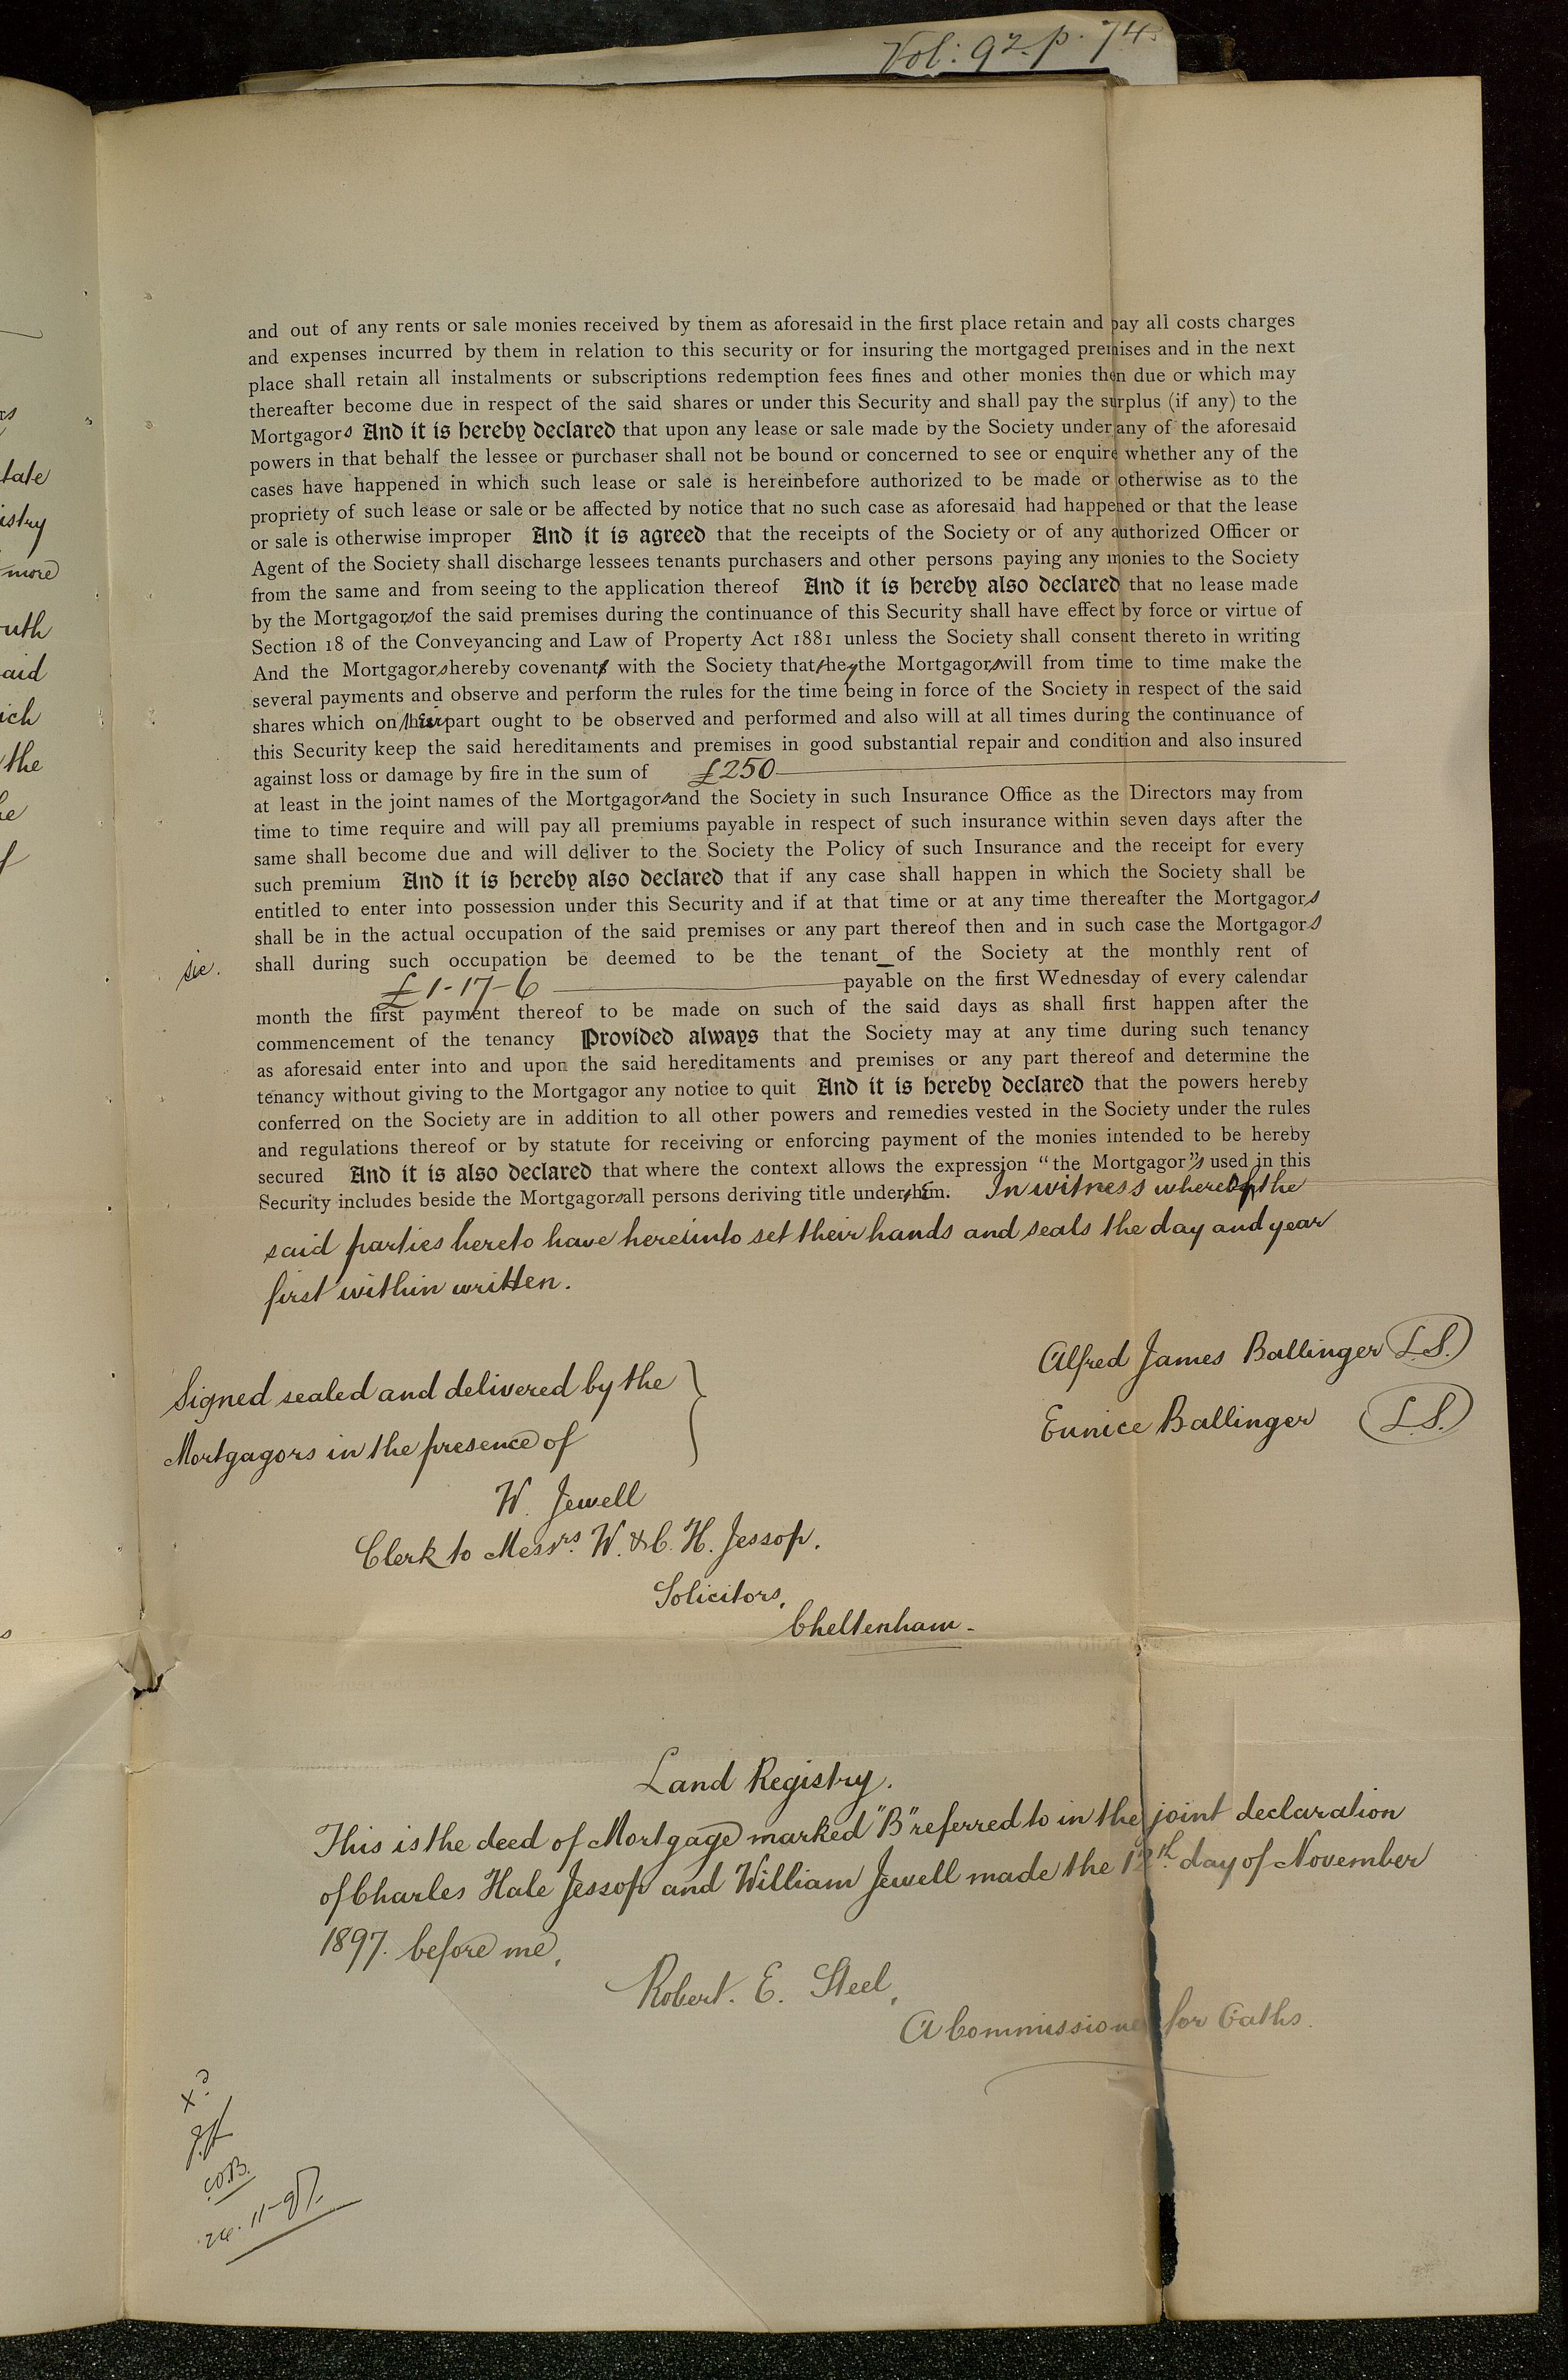 Vol: 92. p. 74.
and out of any rents or sale monies received by them as aforesaid in the first place retain and pay all costs charges
and expenses incurred by them in relation to this security or for insuring the mortgaged premises and in the next
place shall retain all instalments or subscriptions redemption fees fines and other monies then due or which may
thereafter become due in respect of the said shares or under this Security and shall pay the surplus (if any) to the
Mortgagors And it is hereby declared that upon any lease or sale made by the Society under any of the aforesaid
powers in that behalf the lessee or purchaser shall not be bound or concerned to see or enquire whether any of the
cases have happened in which such lease or sale is hereinbefore authorized to be made or otherwise as to the
propriety of such lease or sale or be affected by notice that no such case as aforesaid had happened or that the lease
or sale is otherwise improper And it is agreed that the receipts of the Society or of any authorized Officer or
Agent of the Society shall discharge lessees tenants purchasers and other persons paying any monies to the Society
from the same and from seeing to the application thereof And it is hereby also declared that no lease made
by the Mortgagors of the said premises during the continuance of this Security shall have effect by force or virtue of
Section 18 of the Conveyancing and Law of Property Act 1881 unless the Society shall consent thereto in writing
And the Mortgagors hereby covenant with the Society that they the Mortgagors will from time to time make the
several payments and observe and perform the rules for the time being in force of the Society in respect of the said
shares which on their part ought to be observed and performed and also will at all times during the continuance of
this Security keep the said hereditaments and premises in good substantial repair and condition and also insured
against loss or damage by fire in the sum of £250
at least in the joint names of the Mortgagors and the Society in such Insurance Office as the Directors may from
time to time require and will pay all premiums payable in respect of such insurance within seven days after the
same shall become due and will deliver to the Society the Policy of such Insurance and the receipt for every
such premium And it is hereby also declared that if any case shall happen in which the Society shall be
entitled to enter into possession under this Security and if at that time or at any time thereafter the Mortgagors
shall be in the actual occupation of the said premises or any part thereof then and in such case the Mortgagors
sic. shall during such occupation be deemed to be the tenant of the Society at the monthly rent of
£1-17-6 payable on the first Wednesday of every calendar
month the first payment thereof to be made on such of the said days as shall first happen after the
commencement of the tenancy Provided always that the Society may at any time during such tenancy
as aforesaid enter into and upon the said hereditaments and premises or any part thereof and determine the
tenancy without giving to the Mortgagor any notice to quit And it is hereby declared that the powers hereby
conferred on the Society are in addition to all other powers and remedies vested in the Society under the rules
and regulations thereof or by statute for receiving or enforcing payment of the monies intended to be hereby
secured And it is also declared that where the context allows the expression "the Mortgagors" used in this
Security includes beside the Mortgagors all persons deriving title under them. In witness whereof the
said parties hereto have hereunto set their hands and seals the day and year
first within written.
Signed sealed and delivered by the
Mortgagors in the presence of
W. Jewell
Clerk to Messrs. W. & C. H. Jessop.
Solicitors,
Cheltenham-
Alfred James Ballinger L.S.
Eunice Ballinger L.S.
Land Registry.
This is the deed of Mortgage marked "B" referred to in the joint declaration
of Charles Hale Jessop and William Jewell made the 12th day of November
1897. before me,
Robert. E. Steel,
A Commissioner for Oaths.
tate
istry
more
aid
ich
the